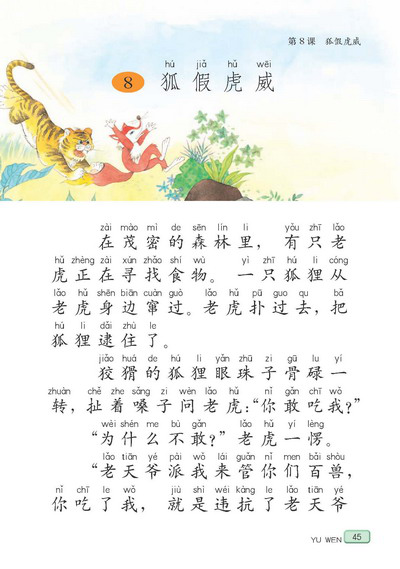 第8课 狐假虎威
hú jiǎ hǔ wēi
8 狐假虎威
zài mào mì de sēn lín lǐ yǒu zhī lǎo
在茂密的森林里，有只老
hǔ zhèng zài xún zhǎo shí wù yì zhī hú li cóng
虎正在寻找食物。一只狐狸从
lǎo hǔ shēn biān cuàn guò lǎo hǔ pū guo qu bǎ
老虎身边窜过。老虎扑过去，把
hú li dǎi zhù le
狐狸逮住了。
jiǎo huá de hú li yǎn zhū zi gū lu yì
狡猾的狐狸眼珠子骨碌一
zhuàn chě zhe sǎng zi wèn lǎo hǔ nǐ gǎn chī wǒ
转，扯着嗓子问老虎：“你敢吃我？”
wèi shén me bù gǎn lǎo hǔ yí lèng
“为什么不敢？”老虎一愣。
lǎo tiān yé pài wǒ lái guǎn nǐ men bǎi shòu
“老天爷派我来管你们百兽，
nǐ chī le wǒ jiù shì wéi kàng le lǎo tiān yé
你吃了我，就是违抗了老天爷
YU WEN 45